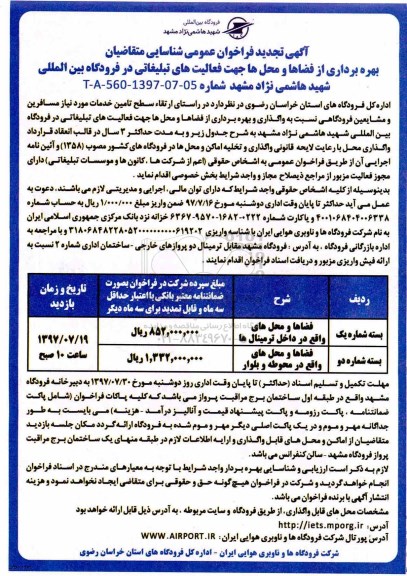 فرودگاه بین المللی
شهید هاشمی نژاد مشهد
آگهی تجدید فراخوان عمومی شناسایی متقاضیان
بهره برداری از فضاها و محل ها جهت فعالیت های تبلیغاتی در فرودگاه بین المللی
شهید هاشمی نژاد مشهد شماره T-A-560-1397-07-05
اداره کل فرودگاه های استان خراسان رضوی در نظر دارد در راستای ارتقاء سطح تامین خدمات مورد نیاز مسافرین
و مشایعین فرودگاهی نسبت به واگذاری و بهره برداری از فضاها و محل ها جهت فعالیت های تبلیغاتی در فرودگاه
بین المللی شهید هاشمی نژاد مشهد به شرح جدول زیر و به مدت حداکثر ۳ سال در قالب انعقاد قرارداد
واگذاری محل با رعایت لایحه قانونی واگذاری و تخلیه اماکن و محل ها در فرودگاه های کشور مصوب (۱۳۵۸) و آئین نامه
اجرایی آن از طریق فراخوان عمومی به اشخاص حقوقی (اعم از شرکت ها ، کانون ها و موسسات تبلیغاتی) دارای
مجوز فعالیت مزبور از مراجع ذیصلاح مجاز و واجد شرایط بخش خصوصی اقدام نماید .
بدینوسیله از کلیه اشخاص حقوقی واجد شرایط که دارای توان مالی ، اجرایی و مدیریتی لازم می باشند، دعوت به
عمل می آید حداکثر تا پایان وقت اداری دوشنبه مورخ ۹۷/۷/۱۶ ضمن واریز مبلغ ۱/۰۰۰/۰۰۰ ریال به حساب شماره
۴۰۰۱۰۶۸۴۰۴۰۰۶۳۳۸ و یا کارت شماره
به نام شرکت فرودگاه ها و ناوبری هوایی ایران با شناسه واریزی
اداره بازرگانی فرودگاه ، به آدرس : فرودگاه مشهد مقابل ترمینال دو پروازهای خارجی - ساختمان اداری شماره ۲ نسبت به
ارائه فیش واریزی مزبور و دریافت اسناد فراخوان اقدام نمایند .
ردیف شرح مبلغ سپرده شرکت در فراخوان بصورت ضمانتنامه معتبر بانکی با اعتبار حداقل سه ماه و قابل تمدید برای سه ماه دیگر تاریخ و زمان بازدید
بسته شماره یک فضاها و محل های واقع در داخل ترمینال ها ۸۵۲,۰۰۰,۰۰۰ ریال
بسته شماره دو فضاها و محل های واقع در محوطه و بلوار ۱,۳۳۲,۰۰۰,۰۰۰ ریال
۱۳۹۷/۰۷/۱۹
ساعت ۱۰ صبح
مهلت تکمیل و تسلیم اسناد (حداکثر) تا پایان وقت اداری روز دوشنبه مورخ ۱۳۹۷/۰۷/۳۰ به دبیرخانه فرودگاه
مشهد واقع در طبقه اول ساختمان برج مراقبت پرواز می باشد که کلیه پاکات فراخوان (شامل پاکت
ضمانتنامه ، پاکت رزومه و پاکت پیشنهاد قیمت و آنالیز درآمد - هزینه) می بایست به طور
جداگانه مهر و موم و در یک پاکت اصلی دیگر مهر و موم شده به فرودگاه ارائه گردد مکان جلسه بازدید
متقاضیان از اماکن و محل های قابل واگذاری و ارایه اطلاعات لازم در طبقه منهای یک ساختمان برج مراقبت
پرواز فرودگاه مشهد - سالن کنفرانس می باشد.
لازم به ذکر است ارزیابی و شناسایی بهره بردار واجد شرایط با توجه به معیارهای مندرج در اسناد فراخوان
انجام خواهد گردید و شرکت در فراخوان هیچ گونه حق و حقوقی برای متقاضی ایجاد نخواهد نمود و هزینه
انتشار آگهی با برنده فراخوان می باشد.
مشخصات محل های قابل واگذاری، از طریق فرودگاه و سایت مربوطه ، به آدرس ذیل قابل ارائه خواهد بود
آدرس: http://iets.mporg.ir
آدرس پورتال شرکت فرودگاه ها و ناوبری هوایی ایران: WWW.AIRPORT.IR
شرکت فرودگاه ها و ناوبری هوایی ایران - اداره کل فرودگاه های استان خراسان رضوی